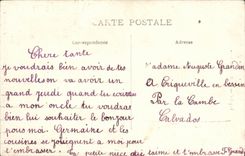 CARTE POSTALE
Correspondance
Adresse
Chere tante
je voudrais bien avoir de tes
nouvelles on va avoir un
grand jeudi quand tu
a mon oncle tu voudras
bien lui souhaiter le bonjour
pour moi Germaine et les
cousines se joignent a moi pour
t'embrasser
La petite niece
Madame Auguste
A Criqueville en bessin
Par la Cambe
Calvados